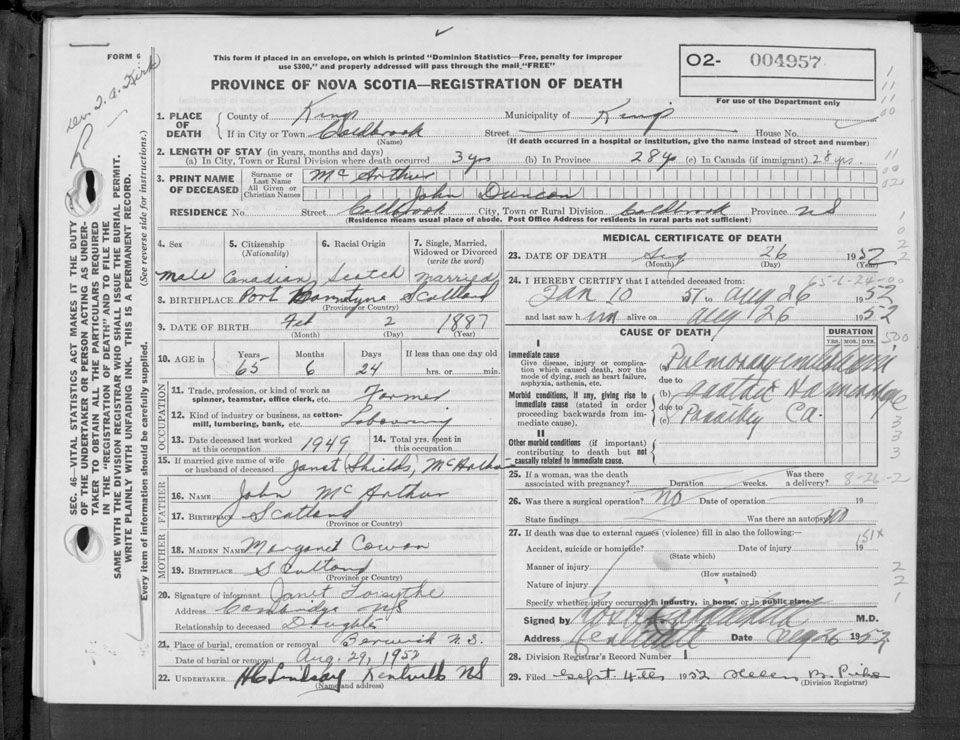 FORM 6
This form if placed in an envelope, on which is printed "Dominion Statistics—Free, penalty for improper
use $300," and properly addressed will pass through the mail "FREE"
O2- 004957
For use of the Department only
PROVINCE OF NOVA SCOTIA—REGISTRATION OF DEATH
1. PLACE OF DEATH
County of Kings Municipality of Kings
If in City or Town Coldbrook Street House No.
(Name) (If death occurred in a hospital or institution, give the name instead of street and number)
2. LENGTH OF STAY (in years, months and days)
(a) In City, Town or Rural Division where death occurred 3 yrs (b) In Province 28 yrs (c) In Canada (if immigrant) 28 yrs.
3. PRINT NAME OF DECEASED
Surname or Last Name McArthur
All Given or Christian Names John Duncan
RESIDENCE No. Street Coldbrook City, Town or Rural Division Coldbrook Province NS
(Residence means usual place of abode. Post Office Address for residents in rural parts not sufficient)
4. Sex
5. Citizenship (Nationality)
6. Racial Origin
7. Single, Married, Widowed or Divorced (write the word)
Male Canadian Scotch Married
8. BIRTHPLACE Port Scotland
(Province or Country)
9. DATE OF BIRTH Feb 2 1887
(Month) (Day) (Year)
10. AGE in Years Months Days If less than one day old
65 6 24 hrs. or min.
OCCUPATION
11. Trade, profession, or kind of work as spinner, teamster, office clerk, etc. Farmer
12. Kind of industry or business, as cotton-mill, lumbering, bank, etc. Labouring
13. Date deceased last worked at this occupation 1949
14. Total yrs. spent in this occupation
15. If married give name of wife or husband of deceased Janet Shields McArthur
FATHER
16. NAME John McArthur
17. BIRTHPLACE Scotland
(Province or Country)
MOTHER
18. MAIDEN NAME Margaret Cowan
19. BIRTHPLACE Scotland
(Province or Country)
20. Signature of informant Janet Forsythe
Address Cambridge NS
Relationship to deceased Daughter
21. Place of burial, cremation or removal Berwick N.S.
Date of burial or removal Aug. 29, 1952
22. UNDERTAKER H C Lindsay Kentville NS
(Name and address)
MEDICAL CERTIFICATE OF DEATH
23. DATE OF DEATH Aug 26 1952
(Month) (Day) (Year)
24. I HEREBY CERTIFY that I attended deceased from:
Jan 10 51 to Aug 26 1952
and last saw him alive on Aug 26 1952
CAUSE OF DEATH DURATION
YRS. MOS. DYS.
I
Immediate cause
Give disease, injury or complication which caused death, not the mode of dying, such as heart failure, asphyxia, asthenia, etc.
(a) Pulmonary embolism
due to
Morbid conditions, if any, giving rise to immediate cause (stated in order proceeding backwards from immediate cause).
(b) Gastric Hemorrhage
due to
(c) Possibly Ca.
II
Other morbid conditions (if important) contributing to death but not causally related to immediate cause.
25. If a woman, was the death associated with pregnancy? Duration weeks. Was there a delivery?
8-26-2
26. Was there a surgical operation? No Date of operation 19
State findings Was there an autopsy No
27. If death was due to external causes (violence) fill in also the following:—
151x
Accident, suicide or homicide? Date of injury 19
(State which)
Manner of injury
(How sustained)
Nature of injury
Specify whether injury occurred in industry, in home, or in public place
Signed by M.D.
Address Kentville Date Aug 26 1952
28. Division Registrar's Record Number 1
29. Filed Sept. 4th 1952 Helen B. Pike
(Division Registrar)
SEC. 46—VITAL STATISTICS ACT MAKES IT THE DUTY
OF THE UNDERTAKER OR PERSON ACTING AS UNDER-
TAKER TO OBTAIN ALL THE PARTICULARS REQUIRED
IN THE "REGISTRATION OF DEATH" AND TO FILE THE
SAME WITH THE DIVISION REGISTRAR WHO SHALL ISSUE THE BURIAL PERMIT.
WRITE PLAINLY WITH UNFADING INK. THIS IS A PERMANENT RECORD.
Every item of information should be carefully supplied. (See reverse side for instructions.)